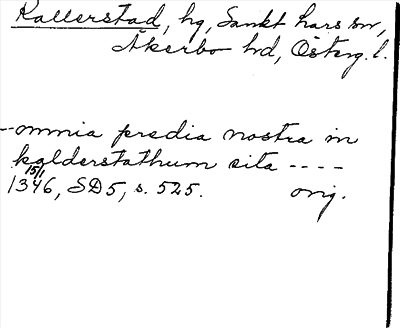 Kallerstad, hg, Sankt Lars sn,
Åkerbo hd, Österg. l.
--omnia predia nostra in
kalderstathum sita ----
15/1
1346, SD5, s. 525. orig.